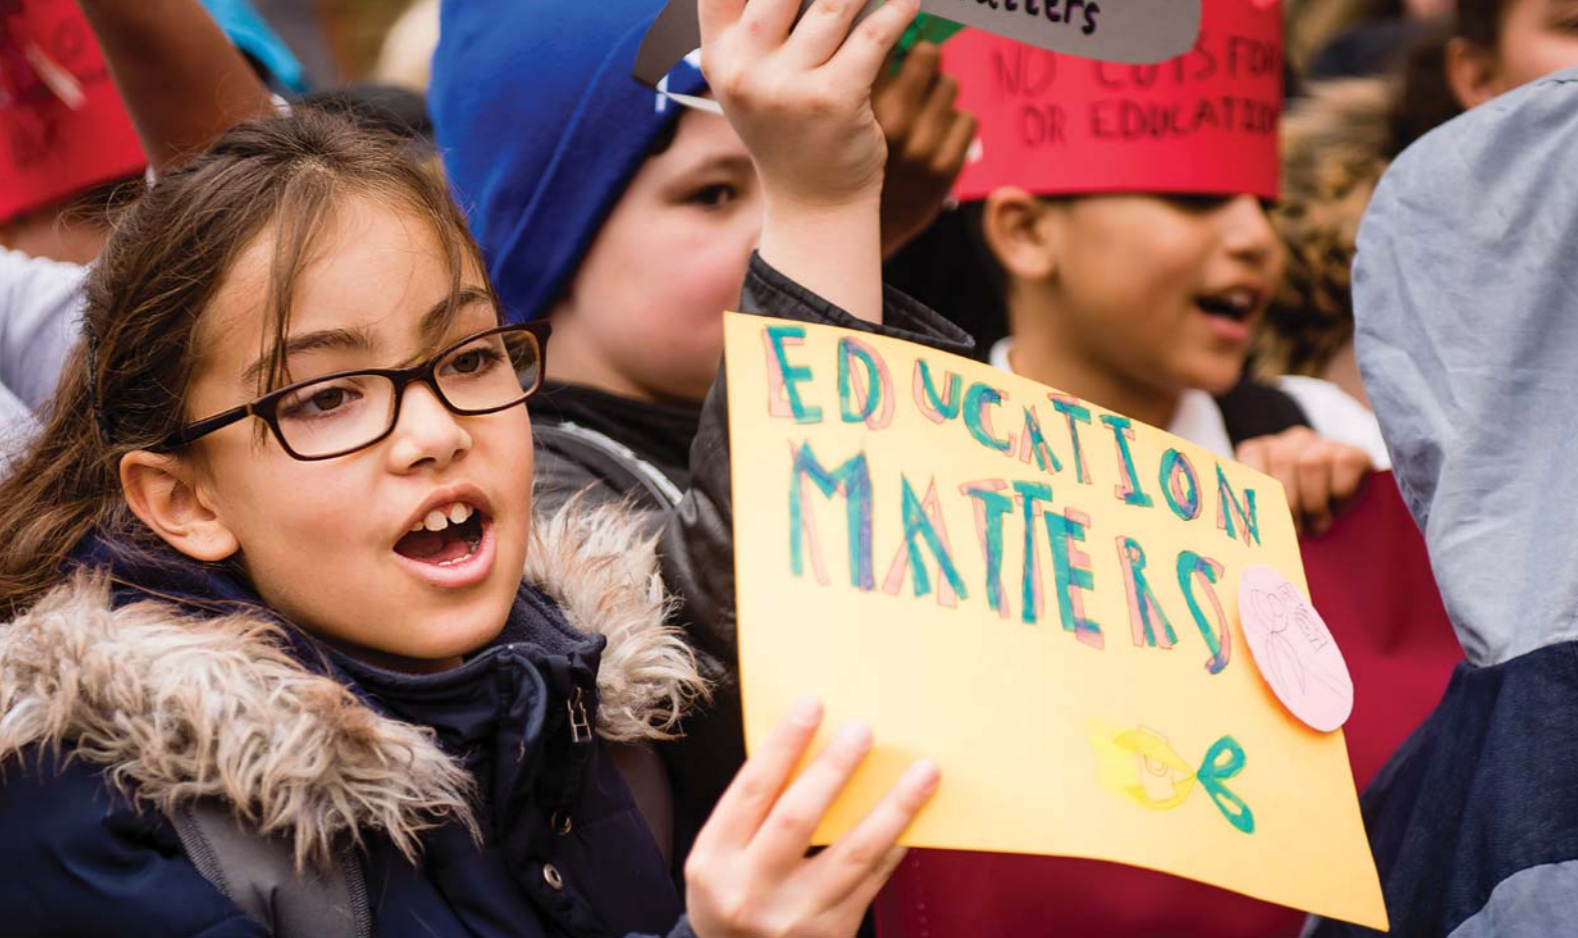 matters
NO CUTS FOR
OR EDUCATION
EDUCATION
MATTERS